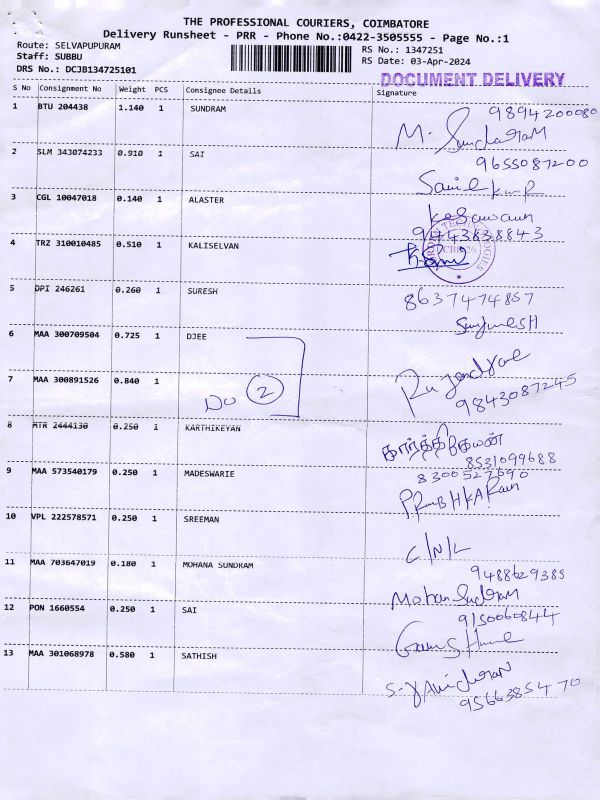 THE PROFESSIONAL COURIERS, COIMBATORE
Delivery Runsheet - PRR - Phone No.:0422-3505555 - Page No.:1
Route: SELVAPUPURAM
RS No.: 1347251
Staff: SUBBU
RS Date: 03-Apr-2024
DRS No.: DCJB134725101
DOCUMENT DELIVERY
S No Consignment No Weight PCS Consignee Details Signature
1 BTU 204438 1.140 1 SUNDRAM 9894200080
M. Sundaram
2 SLM 343074233 0.910 1 SAI 9655087200
3 CGL 10047018 0.140 1 ALASTER
Kesavan
9443838843
4 TRZ 310010485 0.510 1 KALISELVAN
5 DPI 246261 0.260 1 SURESH 8637474857
6 MAA 300709504 0.725 1 DJEE
7 MAA 300891526 0.840 1
2
9843087245
8 MTR 2444130 0.250 1 KARTHIKEYAN
கார்த்திகேயன்
8531099688
9 MAA 573540179 0.250 1 MADESWARIE 8300527690
PRABHKARAN
10 VPL 222578571 0.250 1 SREEMAN
C/N/L
11 MAA 703647019 0.180 1 MOHANA SUNDRAM 9488629389
Mohan Sundram
12 PON 1660554 0.250 1 SAI 9150060844
13 MAA 301068978 0.580 1 SATHISH
9566385470